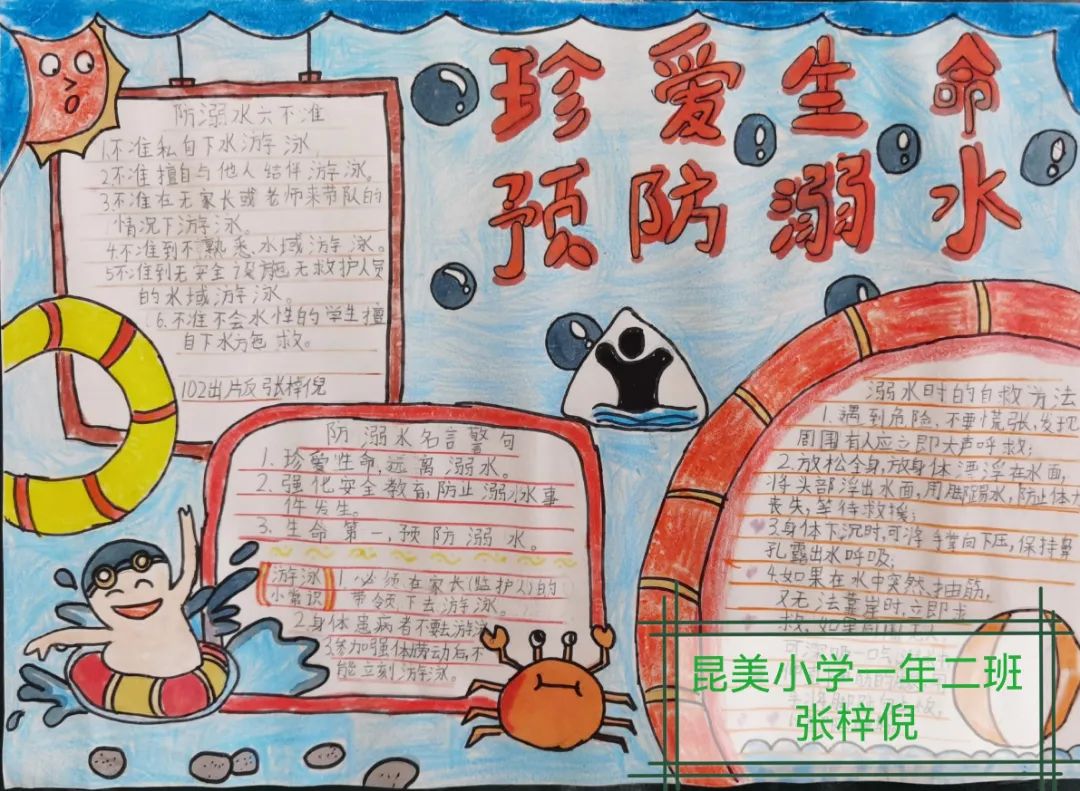 珍爱生命
预防溺水
防溺水六不准
1.不准私自下水游泳
2.不准擅自与他人结伴游泳。
3不准在无家长或老师来带队的
情况下游泳。
4.不准到不熟悉水域游泳。
5不准到无安全设施无救护人员
的水域游泳。
6.不准不会水性的学生擅
自下水施救。
102出片反张梓倪
防溺水名言警句
1.珍爱生命,远离溺水。
2.强化安全教育,防止溺水事
件发生。
3.生命第一,预防溺水。
游泳
小常识
1必须在家长(监护人)的
带领下去游泳。
2身体患病者不要去游泳
3.参加强体劳动后,不
能立刻游泳。
溺水时的自救方法
1.遇到危险,不要慌张,发现
周围有人应立即大声呼救;
2.放松全身,放身体漂浮在水面,
将头部浮出水面,用脚踢水,防止体力
丧失,等待救援;
3.身体下沉时,可将手掌向下压,保持鼻
孔露出水呼吸;
4.如果在水中突然抽筋,
又无法靠岸时,立即求
救,如果周围无
昆美小学一年二班
张梓倪